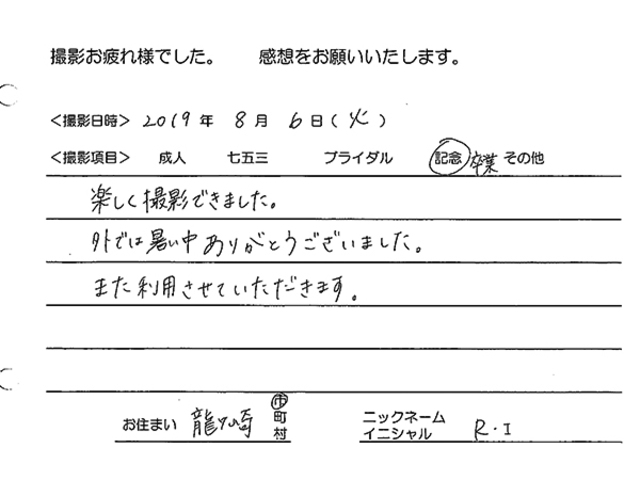 撮影お疲れ様でした。　感想をお願いいたします。
<撮影日時> 2019年 8月 6日(火)
<撮影項目> 成人 七五三 ブライダル 記念 卒業 その他
楽しく撮影できました。
外では暑い中ありがとうございました。
また利用させていただきます。
お住まい 龍ヶ崎 市町村
ニックネーム イニシャル R・I